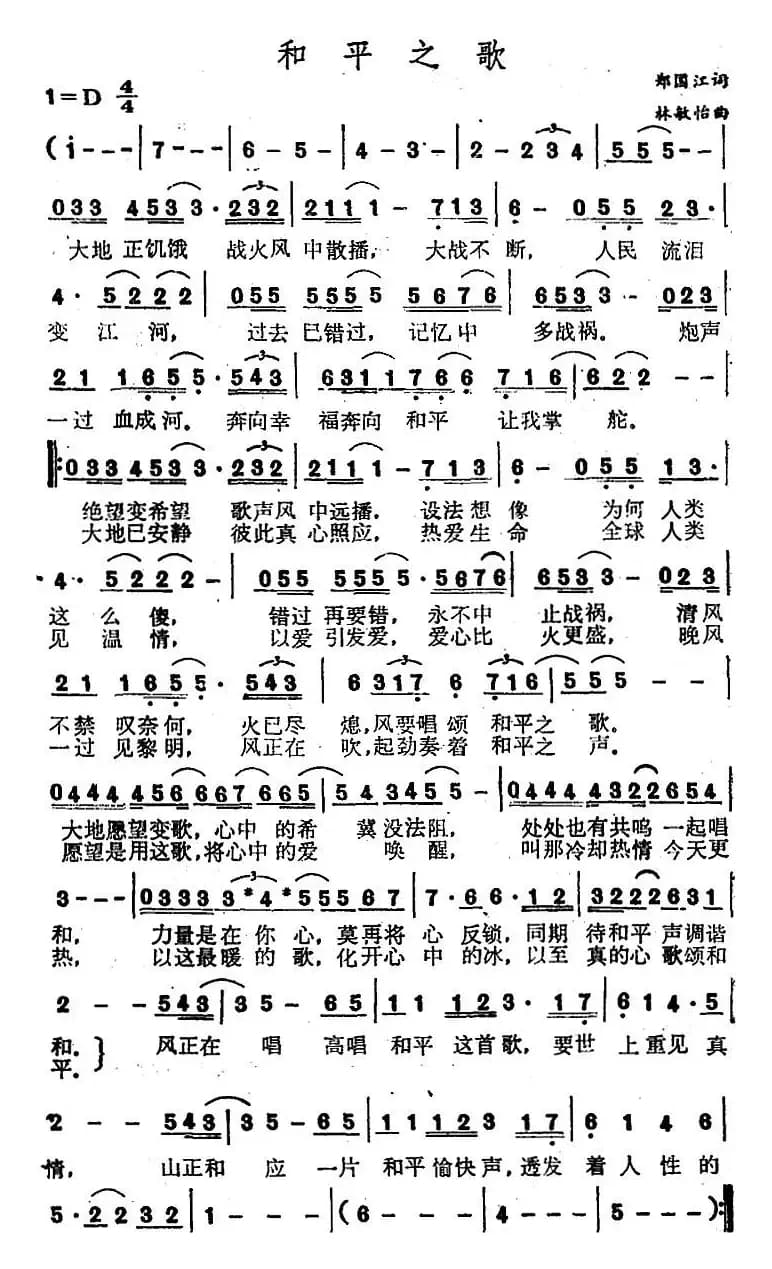 和平之歌
1=D 4/4
郑国江词
林敏怡曲
(i--- | 7--- | 6-5- | 4-3- | 2-234 | 555--|
033 4533·232 | 2111-713 | 6-055 23·|
大地 正饥饿 战火风中散播, 大战不断, 人民 流泪
4·5222 | 055 5555 5676 | 6533-023 |
变江河, 过去已错过, 记忆中 多战祸。 炮声
21 1655·543 | 6311766 716 | 622--|
一过 血成河。 奔向幸 福奔向 和平 让我掌 舵。
‖:0334533·232 | 2111-713 | 6-055 13·|
绝望变希望 歌声风中远播, 设法想像 为何人类
大地已安静 彼此真心照应, 热爱生命 全球人类
4·5222- | 055 5555·5676 | 6533-023 |
这么傻, 错过再要错, 永不中 止战祸, 清风
见温情, 以爱引发爱, 爱心比 火更盛, 晚风
21 1655·543 | 6317 6 716 | 555--|
不禁 叹奈何, 火已尽 熄,风要唱颂 和平之 歌。
一过 见黎明, 风正在 吹,起劲奏着 和平之 声。
0444 456667665 | 543455- | 0444 4322654 |
大地愿望变歌,心中的希 冀没法阻, 处处也有共鸣一起唱
愿望是用这歌,将心中的爱 唤醒, 叫那冷却热情今天更
3--- | 0333 3*4*55567 | 7·66·12 | 3222631 |
和, 力量是在你心,莫再将心反锁,同期待和平声调谐
热, 以这最暖的歌,化开心中的冰,以至真的心歌颂和
2--543 | 35-65 | 11 123·17 | 614·5 |
和。} 风正在唱 高唱和平这首歌,要世上重见真
平。
2--543 | 35-65 | 11123 17 | 6146 |
情, 山正和应 一片和平愉快声,透发着人性的
5·22 32 | 1--- | (6--- | 4--- | 5---):‖